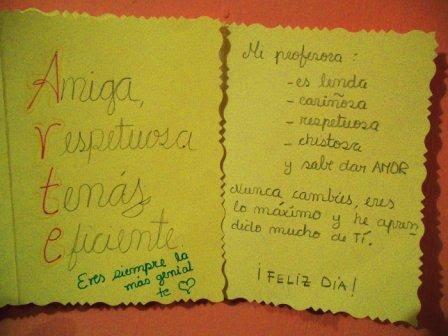 Amiga,
respetuosa
tenás,
eficiente.
Eres siempre la
más genial
te ♡
Mi profesora :
- es linda
- cariñosa
- respetuosa
- chistosa
y sabe dar AMOR
Nunca cambies, eres
lo máximo y he apren-
dido mucho de TÍ.
¡FELIZ DÍA!